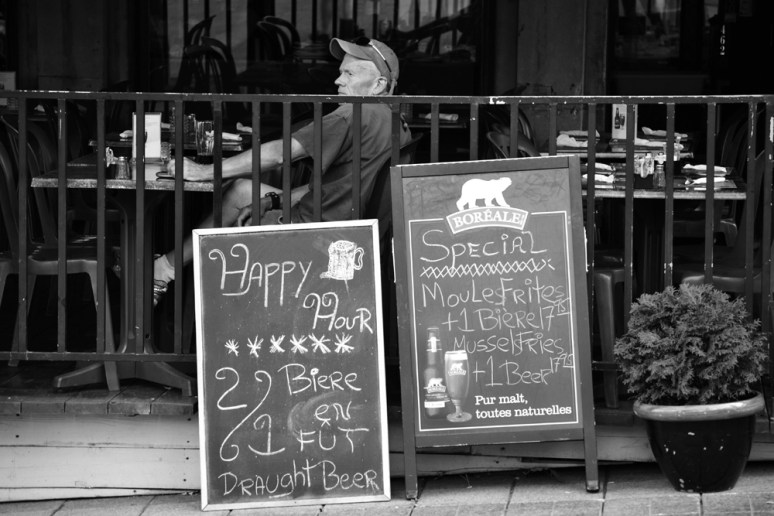 Happy
Hour
******
2/1 Bière
en
FUT
Draught Beer
BORÉALE
Special
Moules Frites
+1 Bière 17.25
Mussels Fries
+1 Beer 17.25
Pur malt,
toutes naturelles
462